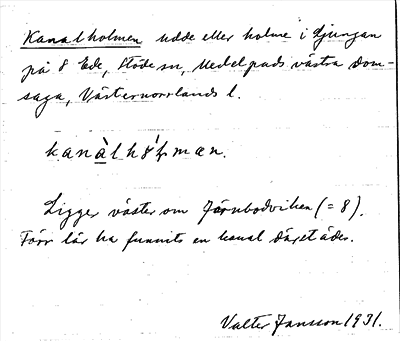 Kanalholmen udde eller holme i Ljungan
på 8 Ede, Stöde sn, Medelpads västra dom-
saga, Västernorrlands l.
Ligger väster om Järnbodviken (= 8).
Förr lär ha funnits en kanal därstädes.
Valter Jansson 1931.